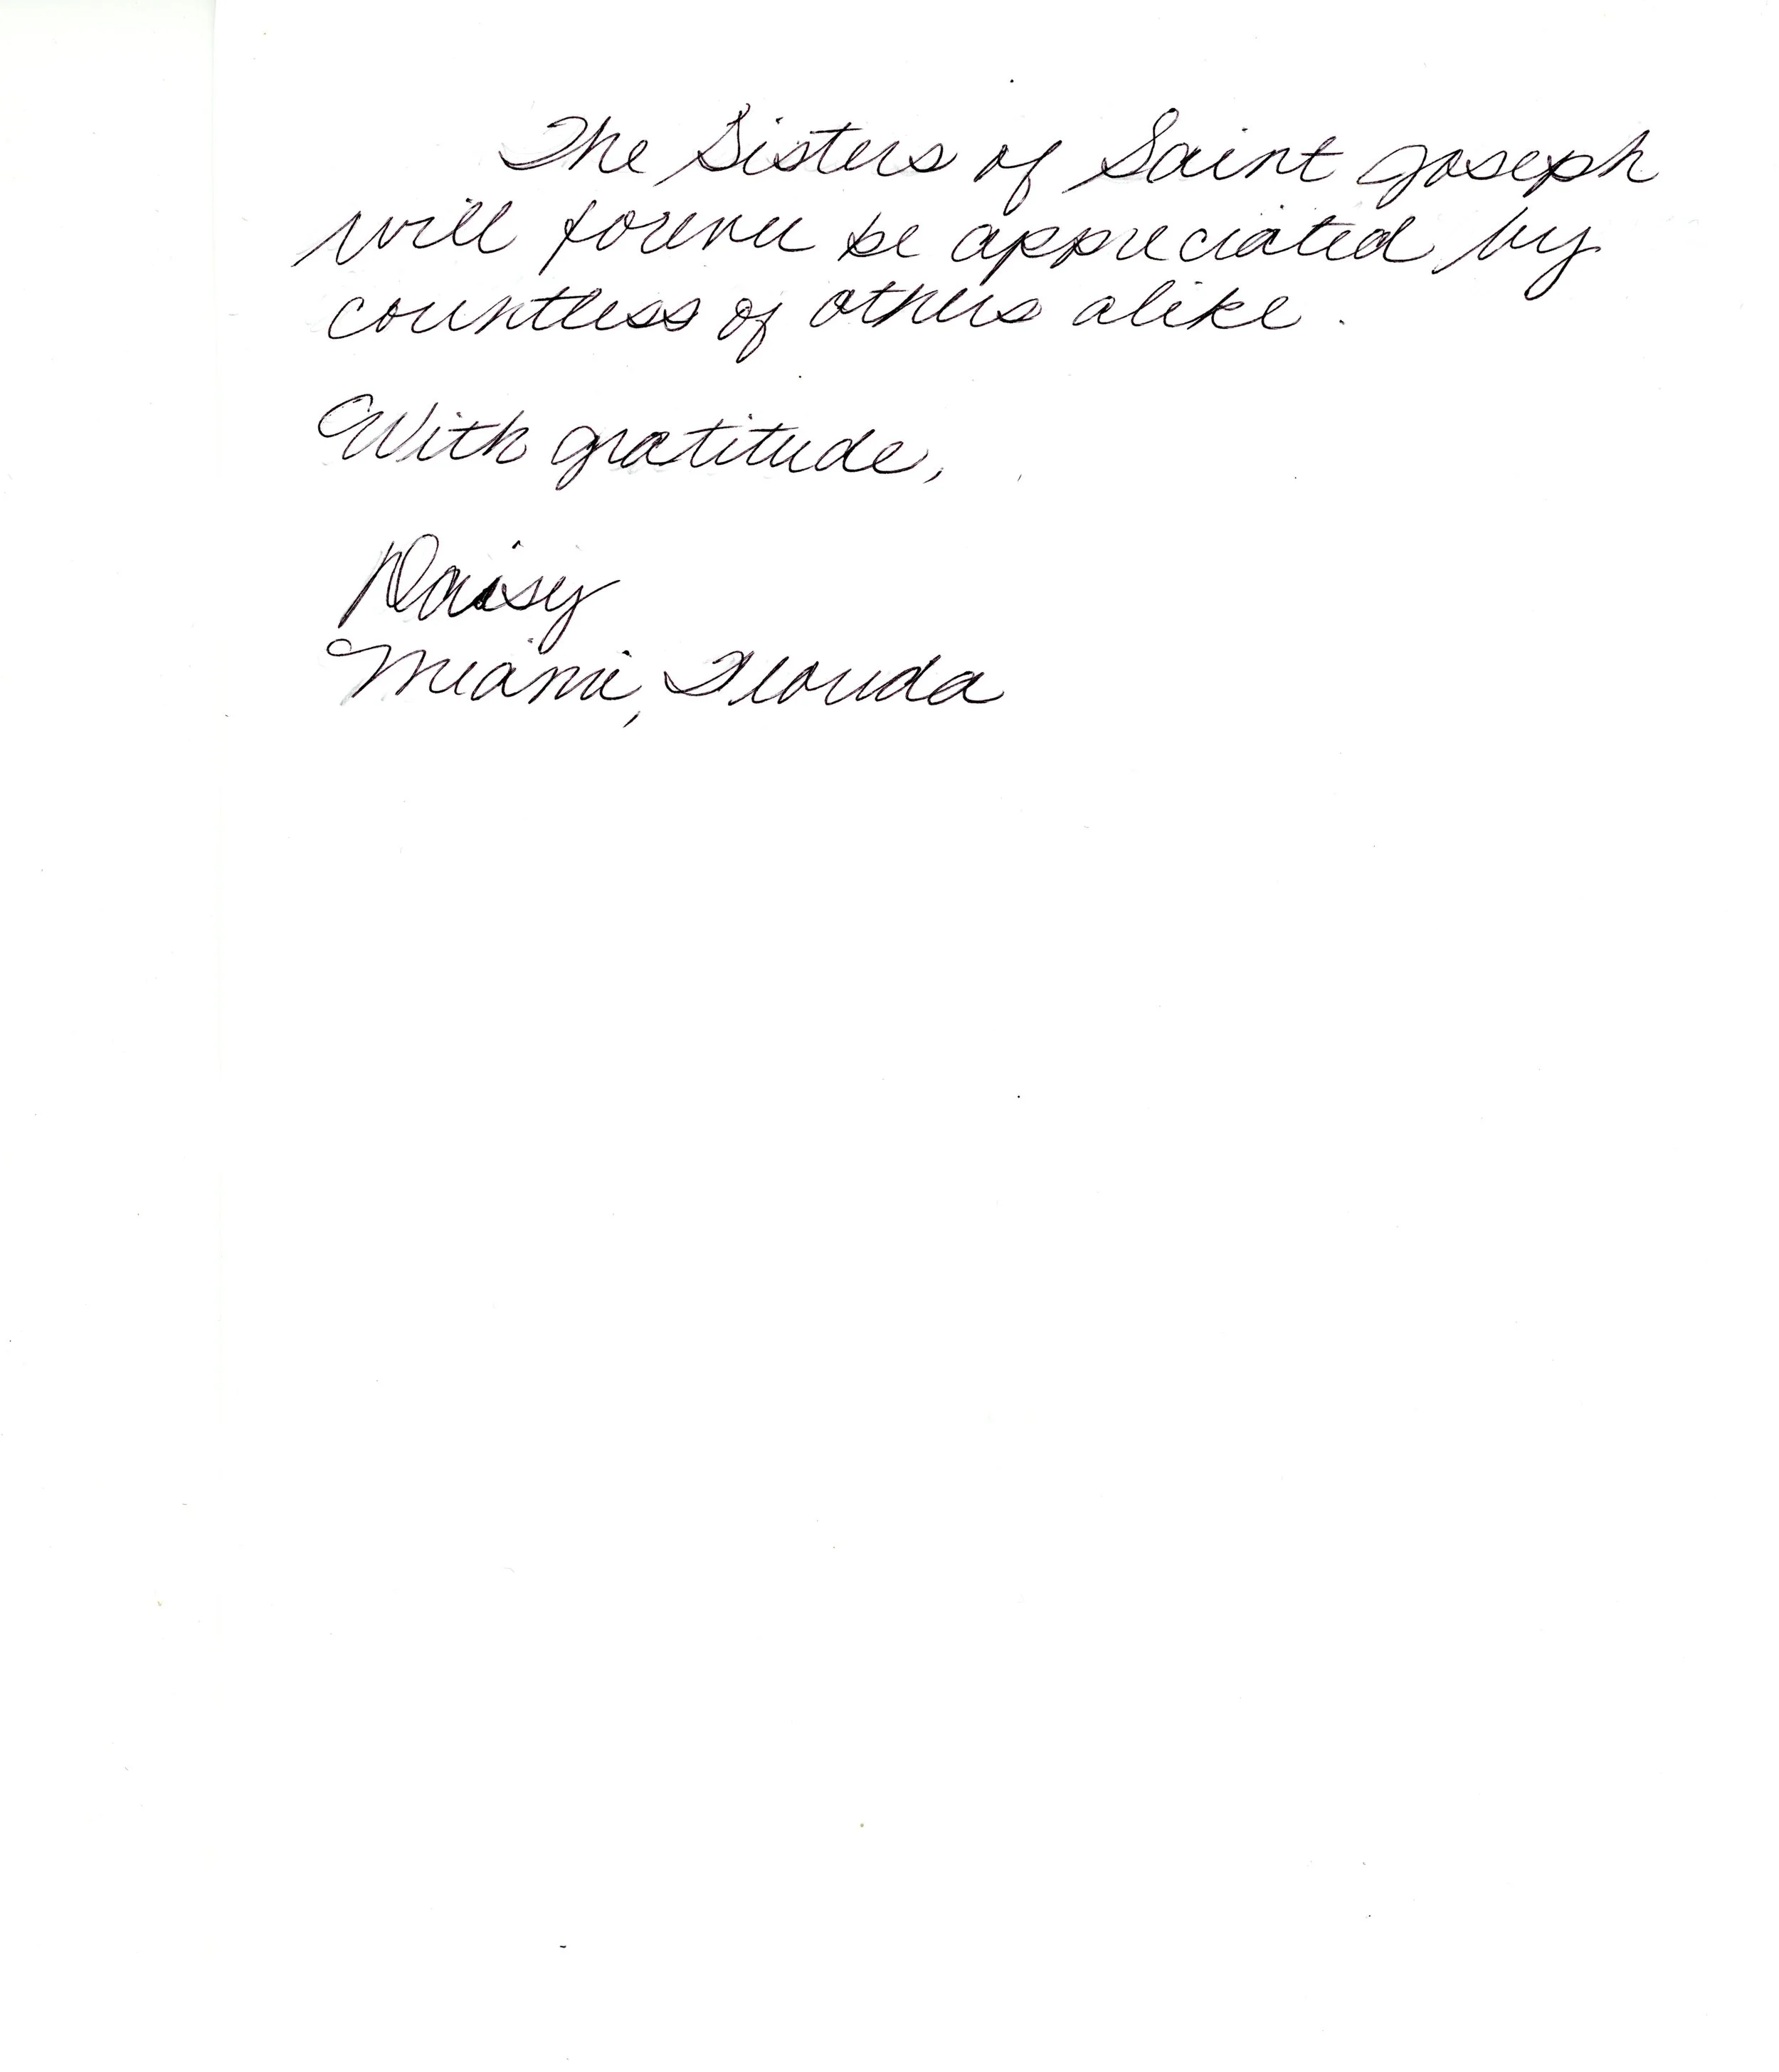 The Sisters of Saint Joseph
will forever be appreciated by
countless of others alike.
With gratitude,
Daisy
Miami, Florida